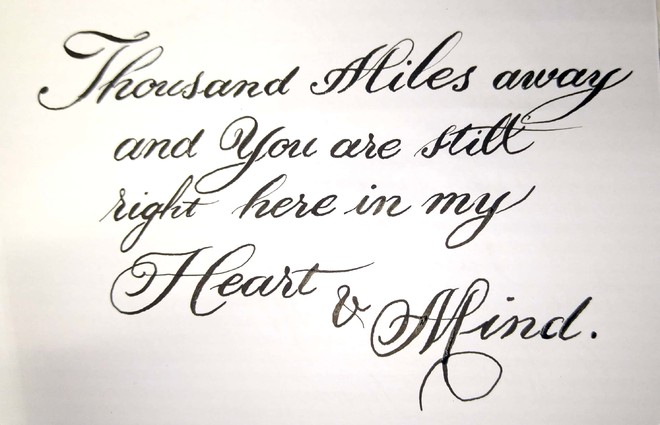 Thousand Miles away
and You are still
right here in my
Heart & Mind.